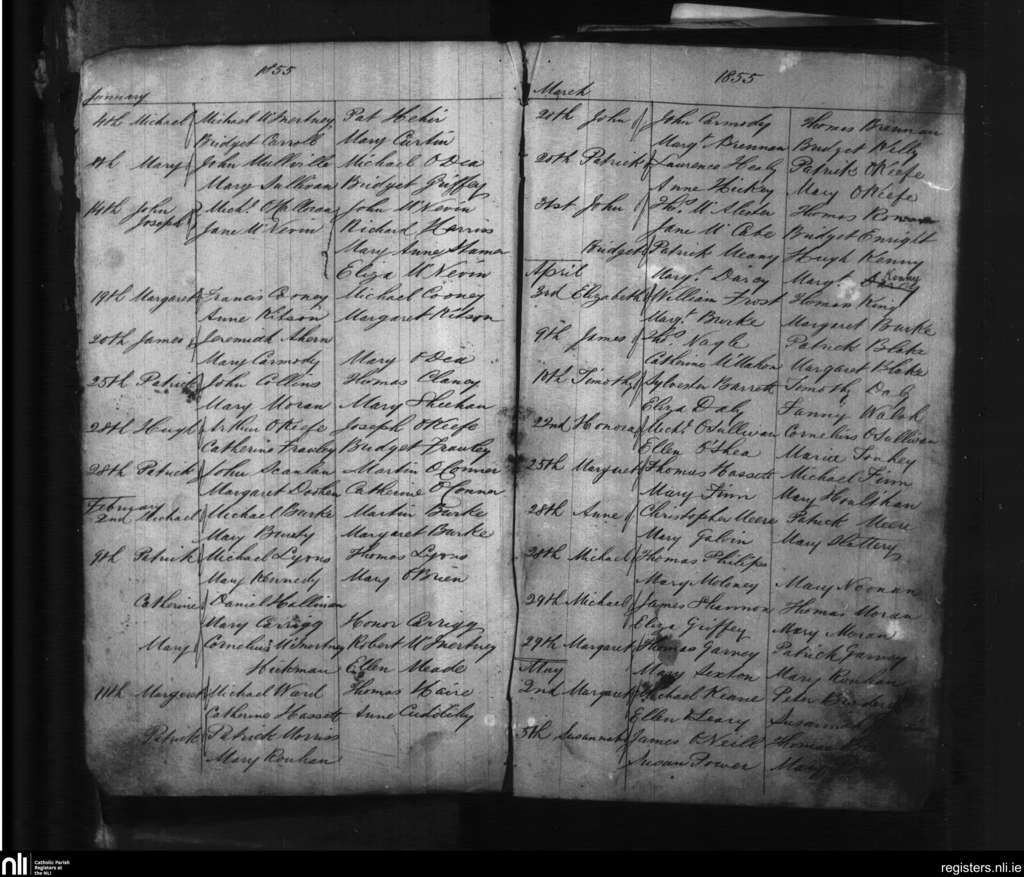 1855
January
4th Michael Michael McInertney Pat Hehir
Bridget Carroll Mary Curtin
Mary John Mullville Michael O'Dea
Mary Sullivan Bridget Griffey
14th John Michl. John McNevin
Joseph Jane McNevin Richard Harris
Mary Anne Hamer
Eliza McNevin
19th Margaret Francis Cooney Michael Cooney
Anne Kitson Margaret Kitson
20th James Jeremiah Ahern
Mary Carmody Mary O'Dea
25th Patrick John Collins Thomas Clancy
Mary Moran Mary Sheehan
28th Hugh Arthur O'Keefe Joseph O'Keefe
Catherine Frawley Bridget Frawley
28th Patrick John Scanlan Martin O'Connor
Margaret Catherine O'Connor
February
2nd Michael Michael Burke Martin Burke
Mary Margaret Burke
9th Patrick Michael Lyons Thomas Lyons
Mary Kennedy Mary O'Brien
Catherine Daniel Hallinan
Mary Carrigg Honor Carrigg
Mary Cornelius McInertney Robert McInertney
Hickman Ellen Meade
11th Margaret Michael Ward Thomas Haire
Catherine Hassett Anne Cuddihy
Patrick Patrick Morris
Mary Rouhan
1855
March
20th John John Carmody Thomas Brennan
Margt. Brennan Bridget Welby
20th Patrick Laurence Healy Patrick O'Keefe
Anne Hickey Mary O'Keefe
31st John Thos. McAlister Thomas
Jane McCabe Bridget Enright
Bridget Patrick Meany Hugh Kenny
Margt. Darcy Margt. Kenny
April
3rd Elizabeth William Frost Thomas King
Margt. Burke Margaret Burke
9th James Thos. Nagle Patrick Blake
Catherine McMahon Margaret Blake
Timothy Sylvester Barrett Timothy Daly
Eliza Daly Fanny Walsh
22nd Honora Michl. O'Sullivan Cornelius O'Sullivan
Ellen O'Shea Maria
25th Margaret Thomas Hassett Michael Finn
Mary Finn Mary Houlihan
28th Anne Christopher Meere Patrick Meere
Mary Galvin Mary Slattery
28th Michael Thomas Philips
Mary Moloney Mary Noonan
29th Michael James Shannon Thomas Moran
Eliza Griffey Mary Moran
29th Margaret Thomas Garney Patrick Garney
Mary Sexton Mary Rouhan
May
2nd Margaret Michael Keane Peter
Ellen O'Leary Susannah
5th Susannah James O'Neill Thomas
Susan Power Mary
nli Catholic Parish
Registers at
the NLI
registers.nli.ie